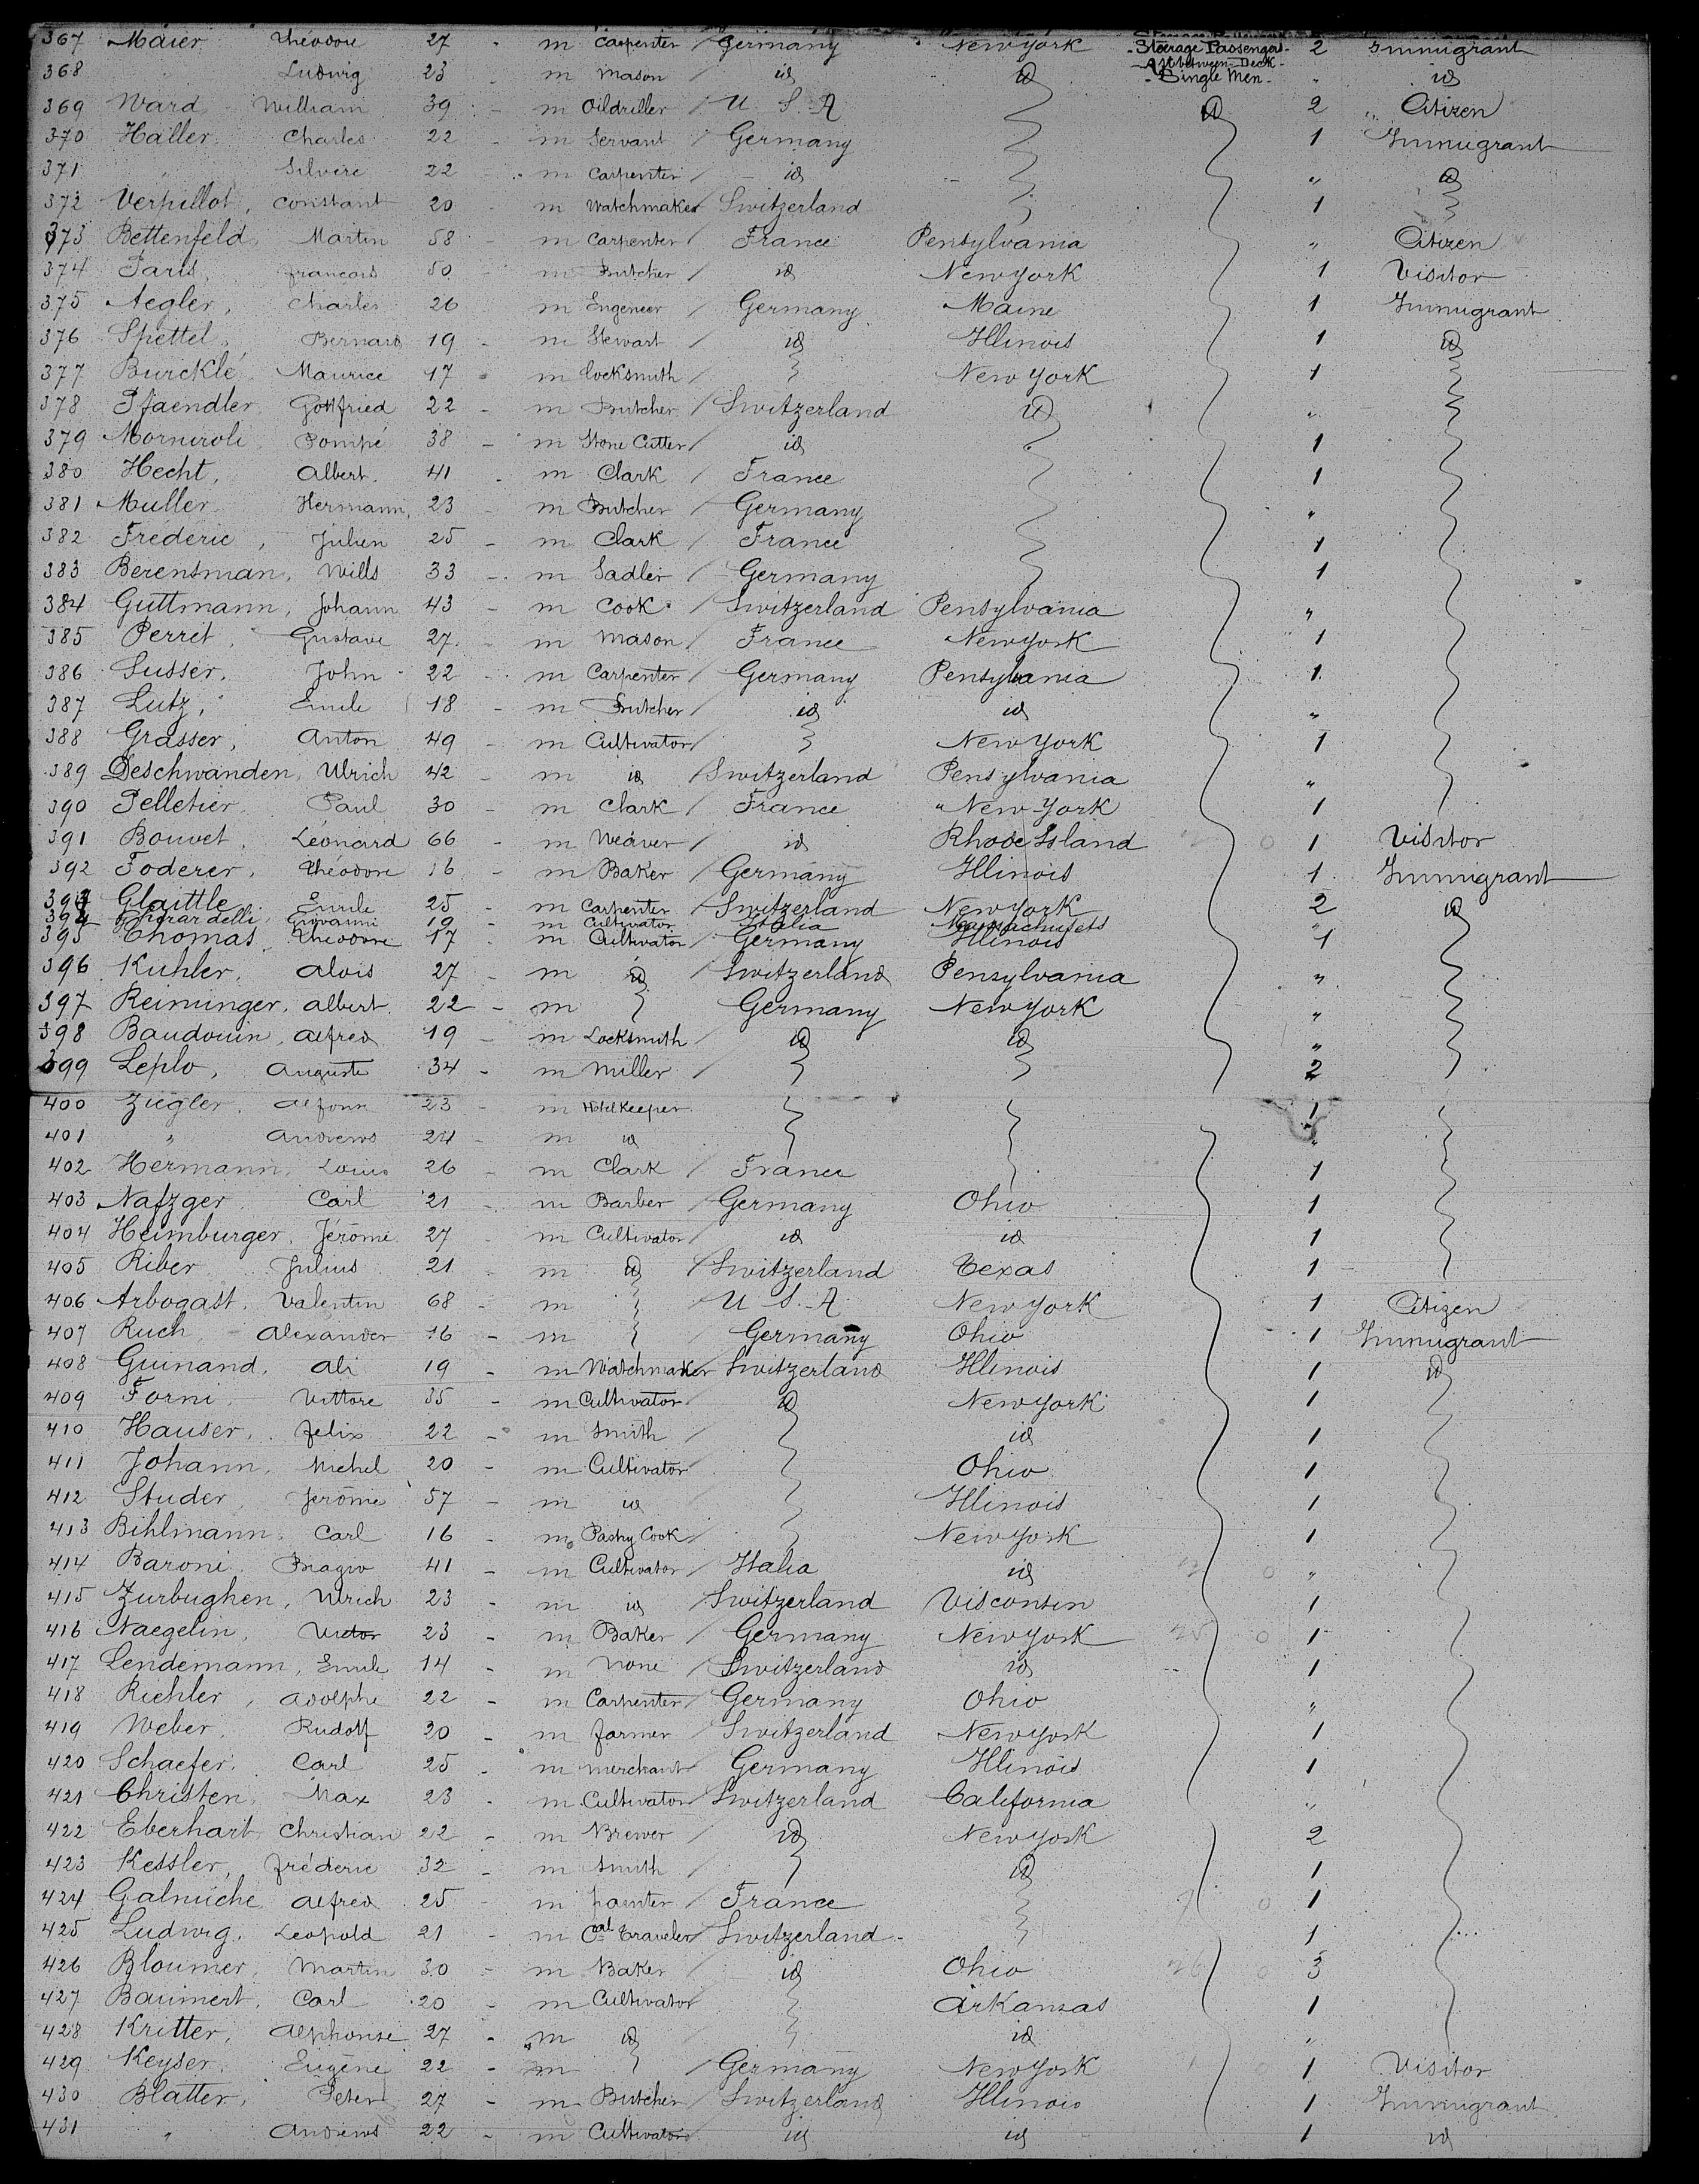 367 Maier Théodore 27 - m Carpenter / Germany New York - Steerage Passengers - 2 Immigrant
368 " Ludwig 23 - m Mason / id id - Aft between Deck - Single Men - " id
369 Ward William 39 - m Oildriller / U. S. A id 2 " Citizen
370 Haller Charles 22 - m Servant / Germany 1 Immigrant
371 " Silvère 22 - m Carpenter / id " id
372 Verpillot, Constant 20 - m Watchmaker Switzerland 1
373 Bettenfeld, Martin 58 - m Carpenter / France Pensylvania " Citizen
374 Paris, francois 50 - m Butcher / id New York 1 Visitor
375 Aegler, Charles 26 m Engeneer / Germany Maine 1 Immigrant
376 Spettel, Bernard 19 - m Stewart / id Illinois 1 id
377 Burcklé Maurice 17 - m Locksmith / New York 1
378 Pfaendler Gottfried 22 - m Butcher / Switzerland id "
379 Morniroli Pompé 38 - m Stone Cutter / id 1
380 Hecht, Albert. 41 - m Clark / France 1
381 Muller Hermann, 23 - m Butcher / Germany "
382 Fréderic, Julien 25 - m Clark / France 1
383 Berensman, Wills 33 - m Sadler / Germany 1
384 Guttmann, Johann 43 - m Cook / Switzerland Pensylvania "
385 Perret, Gustave 27 - m Mason / France New York 1
386 Susser, John 22 - m Carpenter / Germany Pensylvania 1
387 Lutz, Emile 18 - m Butcher / id id "
388 Grasser, Anton 49 - m Cultivator / New York 1
389 Deschwanden, Ulrich 42 - m id / Switzerland Pensylvania "
390 Pelletier Paul 30 - m Clark / France " New York 1
391 Bouvet, Léonard 66 - m Weaver / id Rhode Island 0 1 Visitor
392 Foderer, Théodore 16 - m Baker / Germany Illinois 1 Immigrant
393 Glaittle Emile 25 - m Carpenter / Switzerland New York 2 id
394 Girardelli Giovanni 19 - m Cultivator Italia Massachusets "
395 Thomas Théodore 17 - m Cultivator / Germany Illinois 1
396 Kuhler, Alois 27 - m id / Switzerland Pensylvania "
397 Reininger, Albert 22 - m Germany New York "
398 Baudouin, Alfred 19 - m Locksmith / id id "
399 Leplo, Auguste 34 - m Miller / 2
400 Ziegler, Alfons 23 - m Hotel Keeper 1
401 " Andrews 24 - m id "
402 Hermann, Louis 26 - m Clark / France 1
403 Nafzger Carl 21 - m Barber / Germany Ohio 1
404 Heimburger, Jérôme 27 - m Cultivator / id id 1
405 Riber Julius 21 - m id / Switzerland Texas 1
406 Arbogast, Valentin 68 - m / U. S. A New York 1 Citizen
407 Ruch, Alexander 16 - m / Germany Ohio 1 Immigrant
408 Guinand, Ali 19 - m Watchmaker Switzerland Illinois 1 id
409 Forni, Vittore 35 - m Cultivator / id New York 1
410 Hauser, felix 22 - m Smith / id 1
411 Johann, Michel 20 - m Cultivator Ohio 1
412 Studer, Jerôme 57 - m id / Illinois 1
413 Bihlmann, Carl 16 - m Pastry Cook / New York 1
414 Baroni Biagio 41 - m Cultivator / Italia id 0 "
415 Zurbughen, Ulrich 23 - m id / Switzerland Visconsin 1
416 Naegelin, Victor 23 - m Baker / Germany New York 0 1
417 Lendemann, Emile 14 - m None / Switzerland id 1
418 Richler, Adolphe 22 - m Carpenter / Germany Ohio "
419 Weber, Rudolf 30 - m farmer / Switzerland New York 1
420 Schaefer, Carl 25 - m merchant Germany Illinois 1
421 Christen, Max 23 - m Cultivator Switzerland California "
422 Eberhart Christian 22 - m Brewer / id New York 2
423 Kessler, fréderic 32 - m Smith / id 1
424 Galmiche Alfred 25 - m painter / France 0 1
425 Ludwig, Leopold 21 - m Cal Traveler / Switzerland - 1
426 Bloumer, Martin 30 - m Baker / id Ohio 26 0 3
427 Baumert, Carl 20 - m Cultivator Arkansas 1
428 Kritter, Alphonse 27 - m id id "
429 Keyser, Eugène 22 - m / Germany New York 0 1 Visitor
430 Blatter, Peter 27 - m Butcher / Switzerland Illinois 1 Immigrant
431 " Andrews 22 - m Cultivator id id 1 id